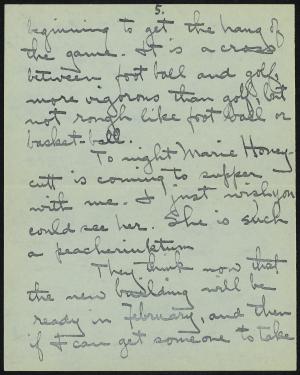 5.
beginning to get the hang of
the game. It is a cross
between foot ball and golf,
more vigorous than golf, but
not rough like foot ball or
basket-ball.
To night Marie Honey-
cutt is coming to supper
with me. I just wish you
could see her. She is such
a peacherinktum
They think now that
the new building will be
ready in February, and then
if I can get someone to take